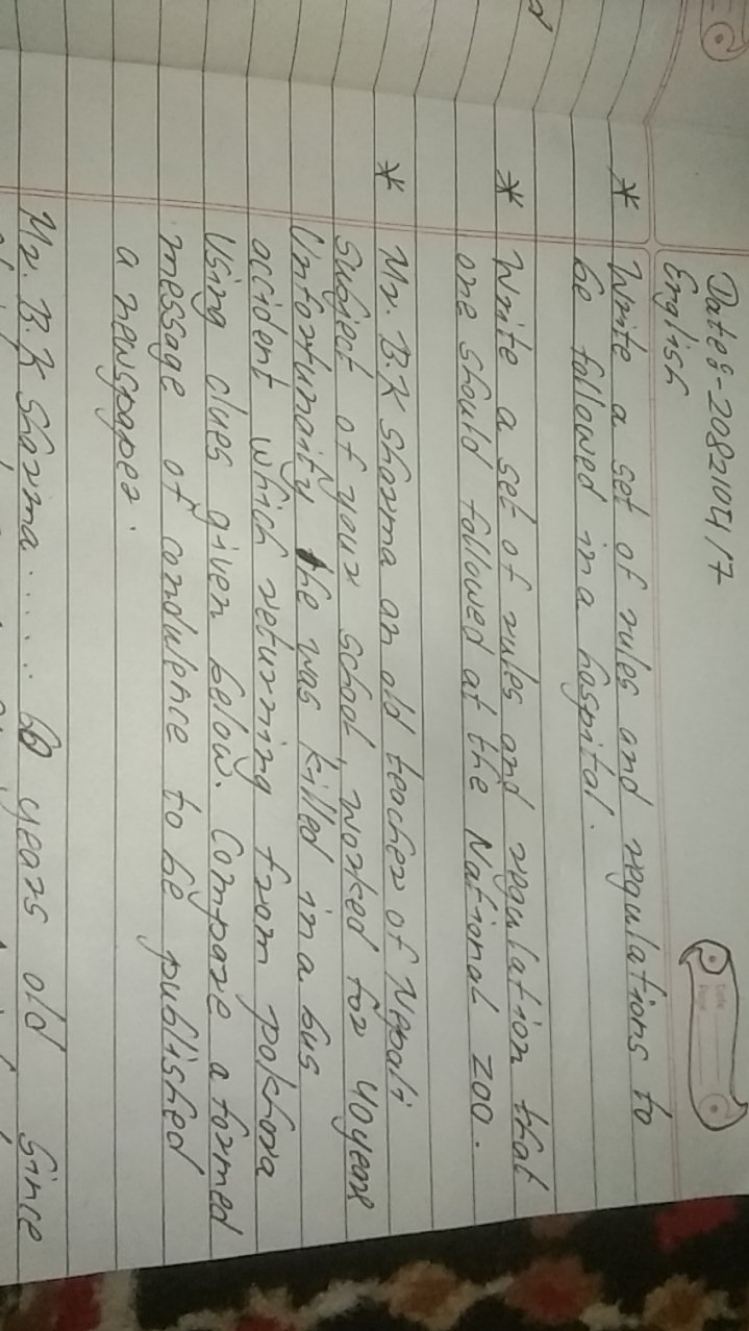 Date:- 2082/04/7
English
* Write a set of rules and regulations to
be followed in a hospital.
* Write a set of rules and regulation that
one should followed at the National zoo.
* Mr. B.K Sharma an old teacher of Nepali
subject of your school, worked for 40 years
Unfortunaity he was killed in a bus
accident which returning from pokhara
Using clues given below. Compare a formed
message of condulence to be published
a newspaper.
Mr. B.K Sharma..... 60 years old since